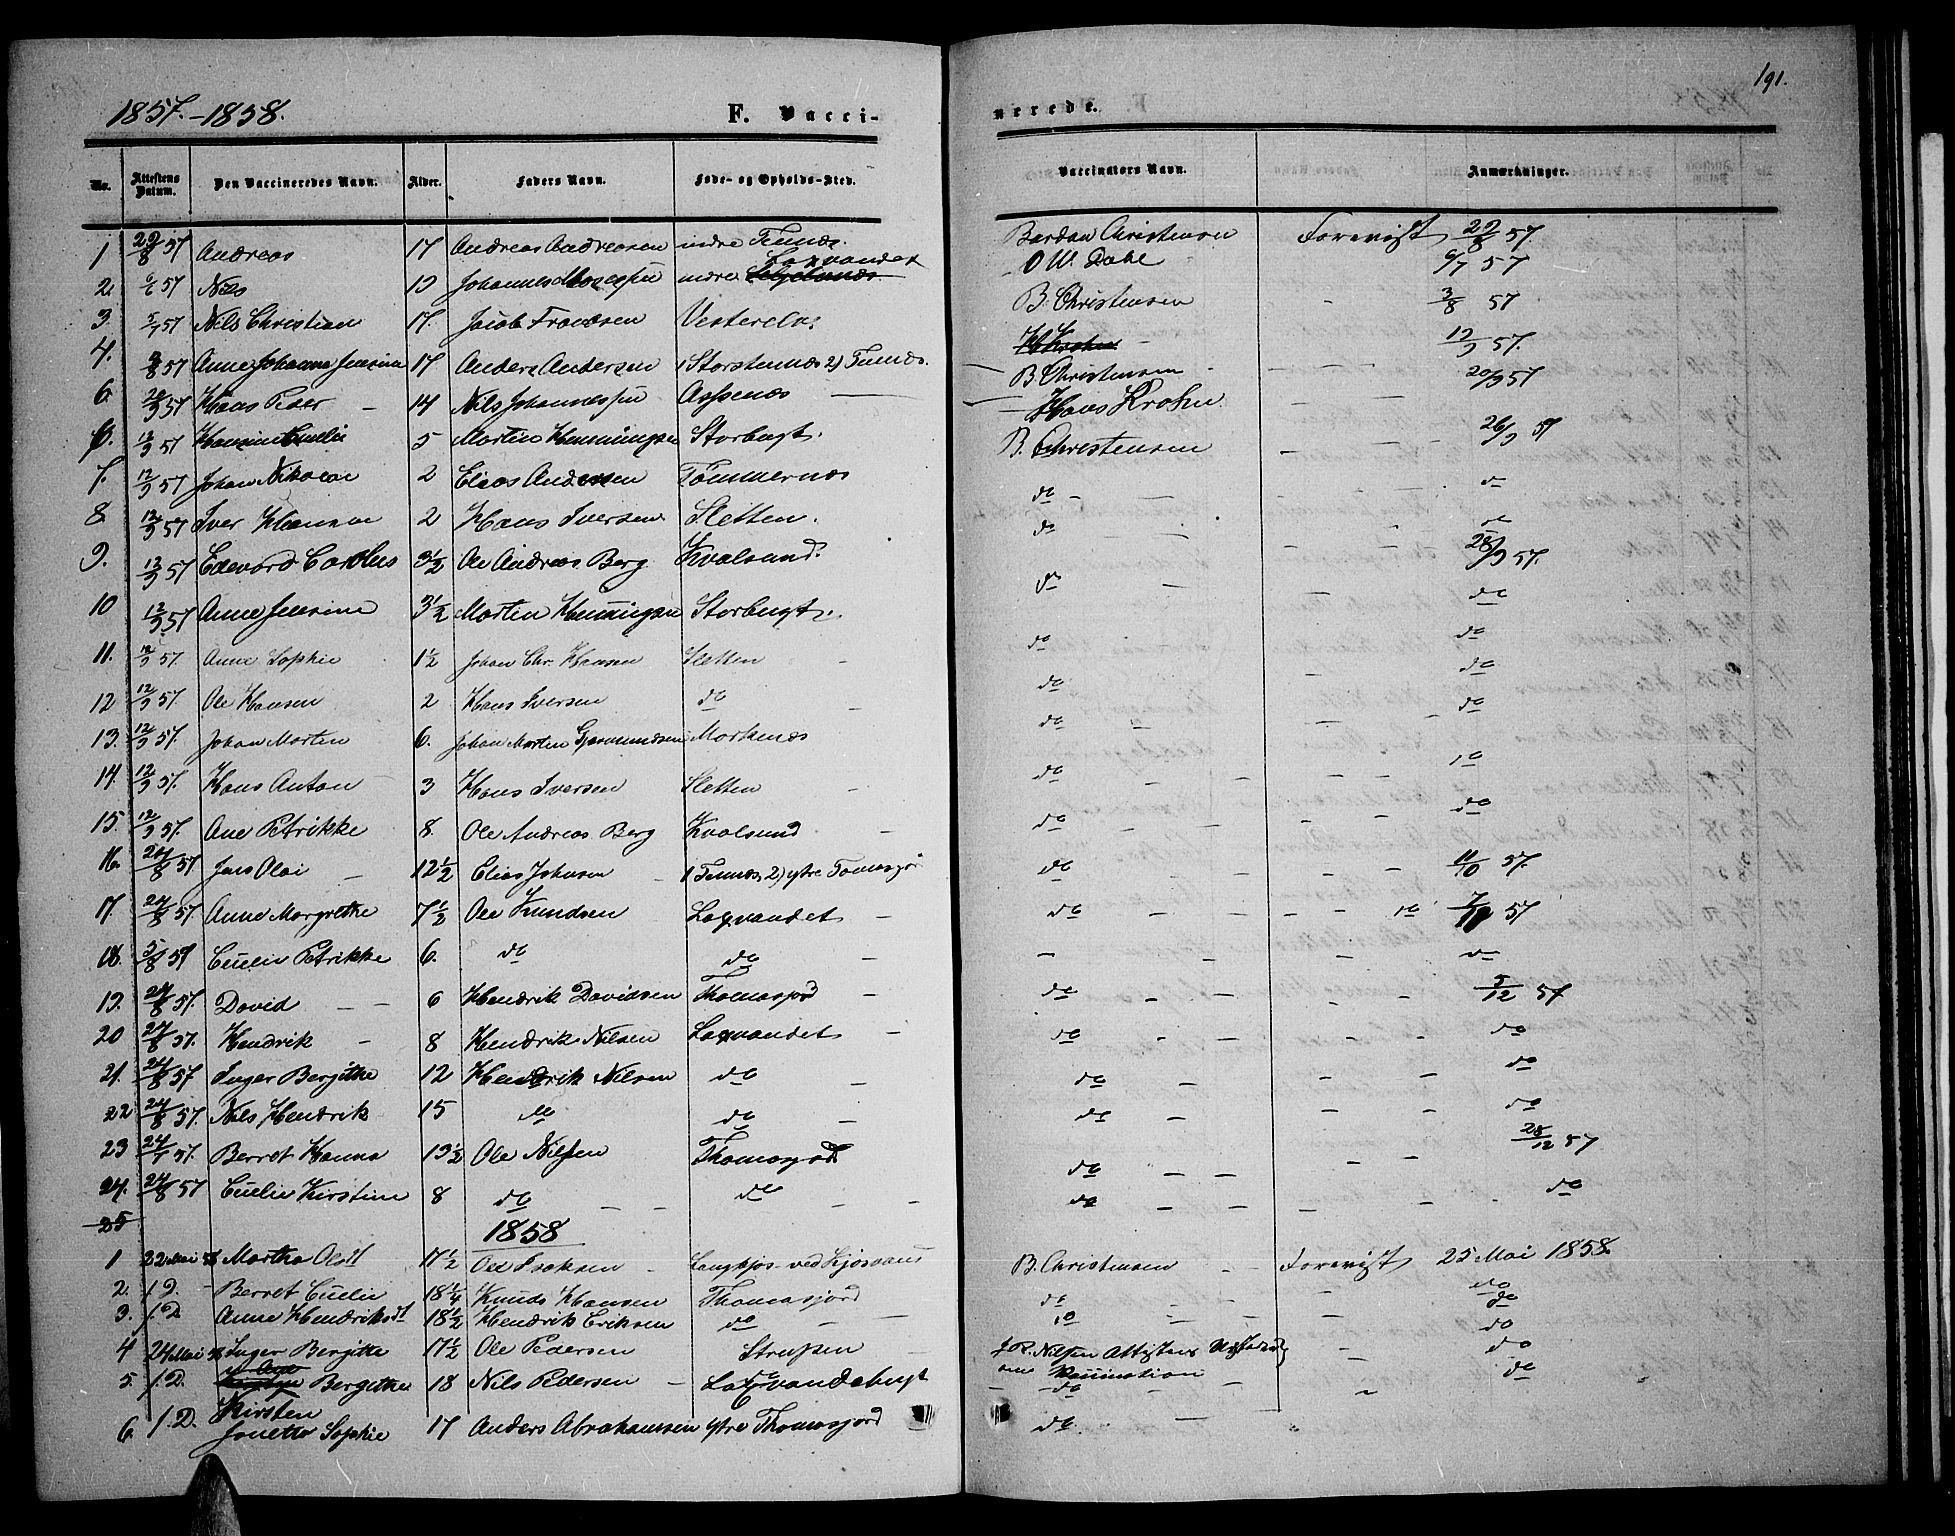 191.
1857.-1858. F. Vacci-nerede.
No. Attestens Datum. Den Vaccineredes Navn. Alder. Faders Navn. Føde- og Opholds-Sted. Vaccinators Navn. Anmærkninger.
1 29/8 57 Andreas 17 Andreas Andreasen indre Tennæs. Bardon Christensen Forevist 29/8 57.
2. 6/6 57 Nils Johannes indre Laxvandet O W. Dahl 6/7 57
3. 5/7 57 Nils Christian 17. Jacob Vesterelv B. Christensen 3/8 57
4. 57 Anne Johanna Jensine 17 Anders Andersen 1) Storstennæs 2) Tennæs. 12/9 57.
6. 57 Hans Peder - 14 Nils Johannessen Aspenæs B Christensen 20/9 57
Hans Krohn.
6. 12/9 57 5 Martin Henningsen Storbugt. B. Christensen 26/9 57
7. 12/9 57 Johan Nikolai 2 Elias Andersen Tømmernæs do - do
8. 12/9 57 Iver Hansen 2 Hans Iversen Sletten. do do
9. 12/9 57 Edevard 3½ Ole Andreas Berg Kvalsund. do 28/9 57.
10 12/9 57 Anne Jensine 3½ Morten Henningsen Storbugt. do do
11. 12/9 57. Anne Sophie 1½ Johan Chr. Hansen Sletten - do do
12 12/9 57 Ole Hansen 2 Hans Iversen do do do
13. 12/9 57. Johan Morten 6. Johan Morten Gjermundsen Mortenæs do do
14. 12/9 57. Hans Anton 3 Hans Iversen Sletten - do do
15. 12/9 57. Ane Petrikke 8. Ole Andreas Berg Kvalsund - do do
16. 24/8 57 Jens Olai - 12½ Elias Johnsen 1) Tennæs, 2) ytre do 11/10 57.
17. 24/8 57. Anne Margrethe 7½ Ole Knudsen Laxvandet - do do 57
18. 5/8 57 Petrikke 6. do do - do
19. 24/8 57. David - - 6 Hendrik Davidsen Thomasjord - do 5/12 57
20 24/8 57. Hendrik - 8 Hendrik Nilsen Laxvandet - do do
21. 24/8 57 Inger Bergithe 12 Hendrik Nilsen do - do do
22 24/8 57. Nils Hendrik 15 do do - do do
23 57. Berret Hanna 13½ Ole Nilsen Thomasjord do 28/12 57
24. 24/8 57 Kirstine 8 do - - do - do do
25
1858
1 22 Mai 58 Martha Olsdt 17½ Ole Isaksen - B. Christensen Forevist 25 Mai 1858.
2. f. D. - Berret 18¼ Knuds Hansen Thomasjord do do
3. f. D Anne Hendriksdt 18½ Hendrik Eriksen do - - do do
4 24 Mai 58 Inger Bergitte 17½ Ole Pedersen Strupen - J. R. Nilsen Attestens do
5. f. D. Bergithe 18 Nils Pedersen - Laxvandsbugt om Vaccination do
- do
6. f. D. Kirsten
Jonetta Sophie 17 Anders Abrahamsen ytre Thomasjord do